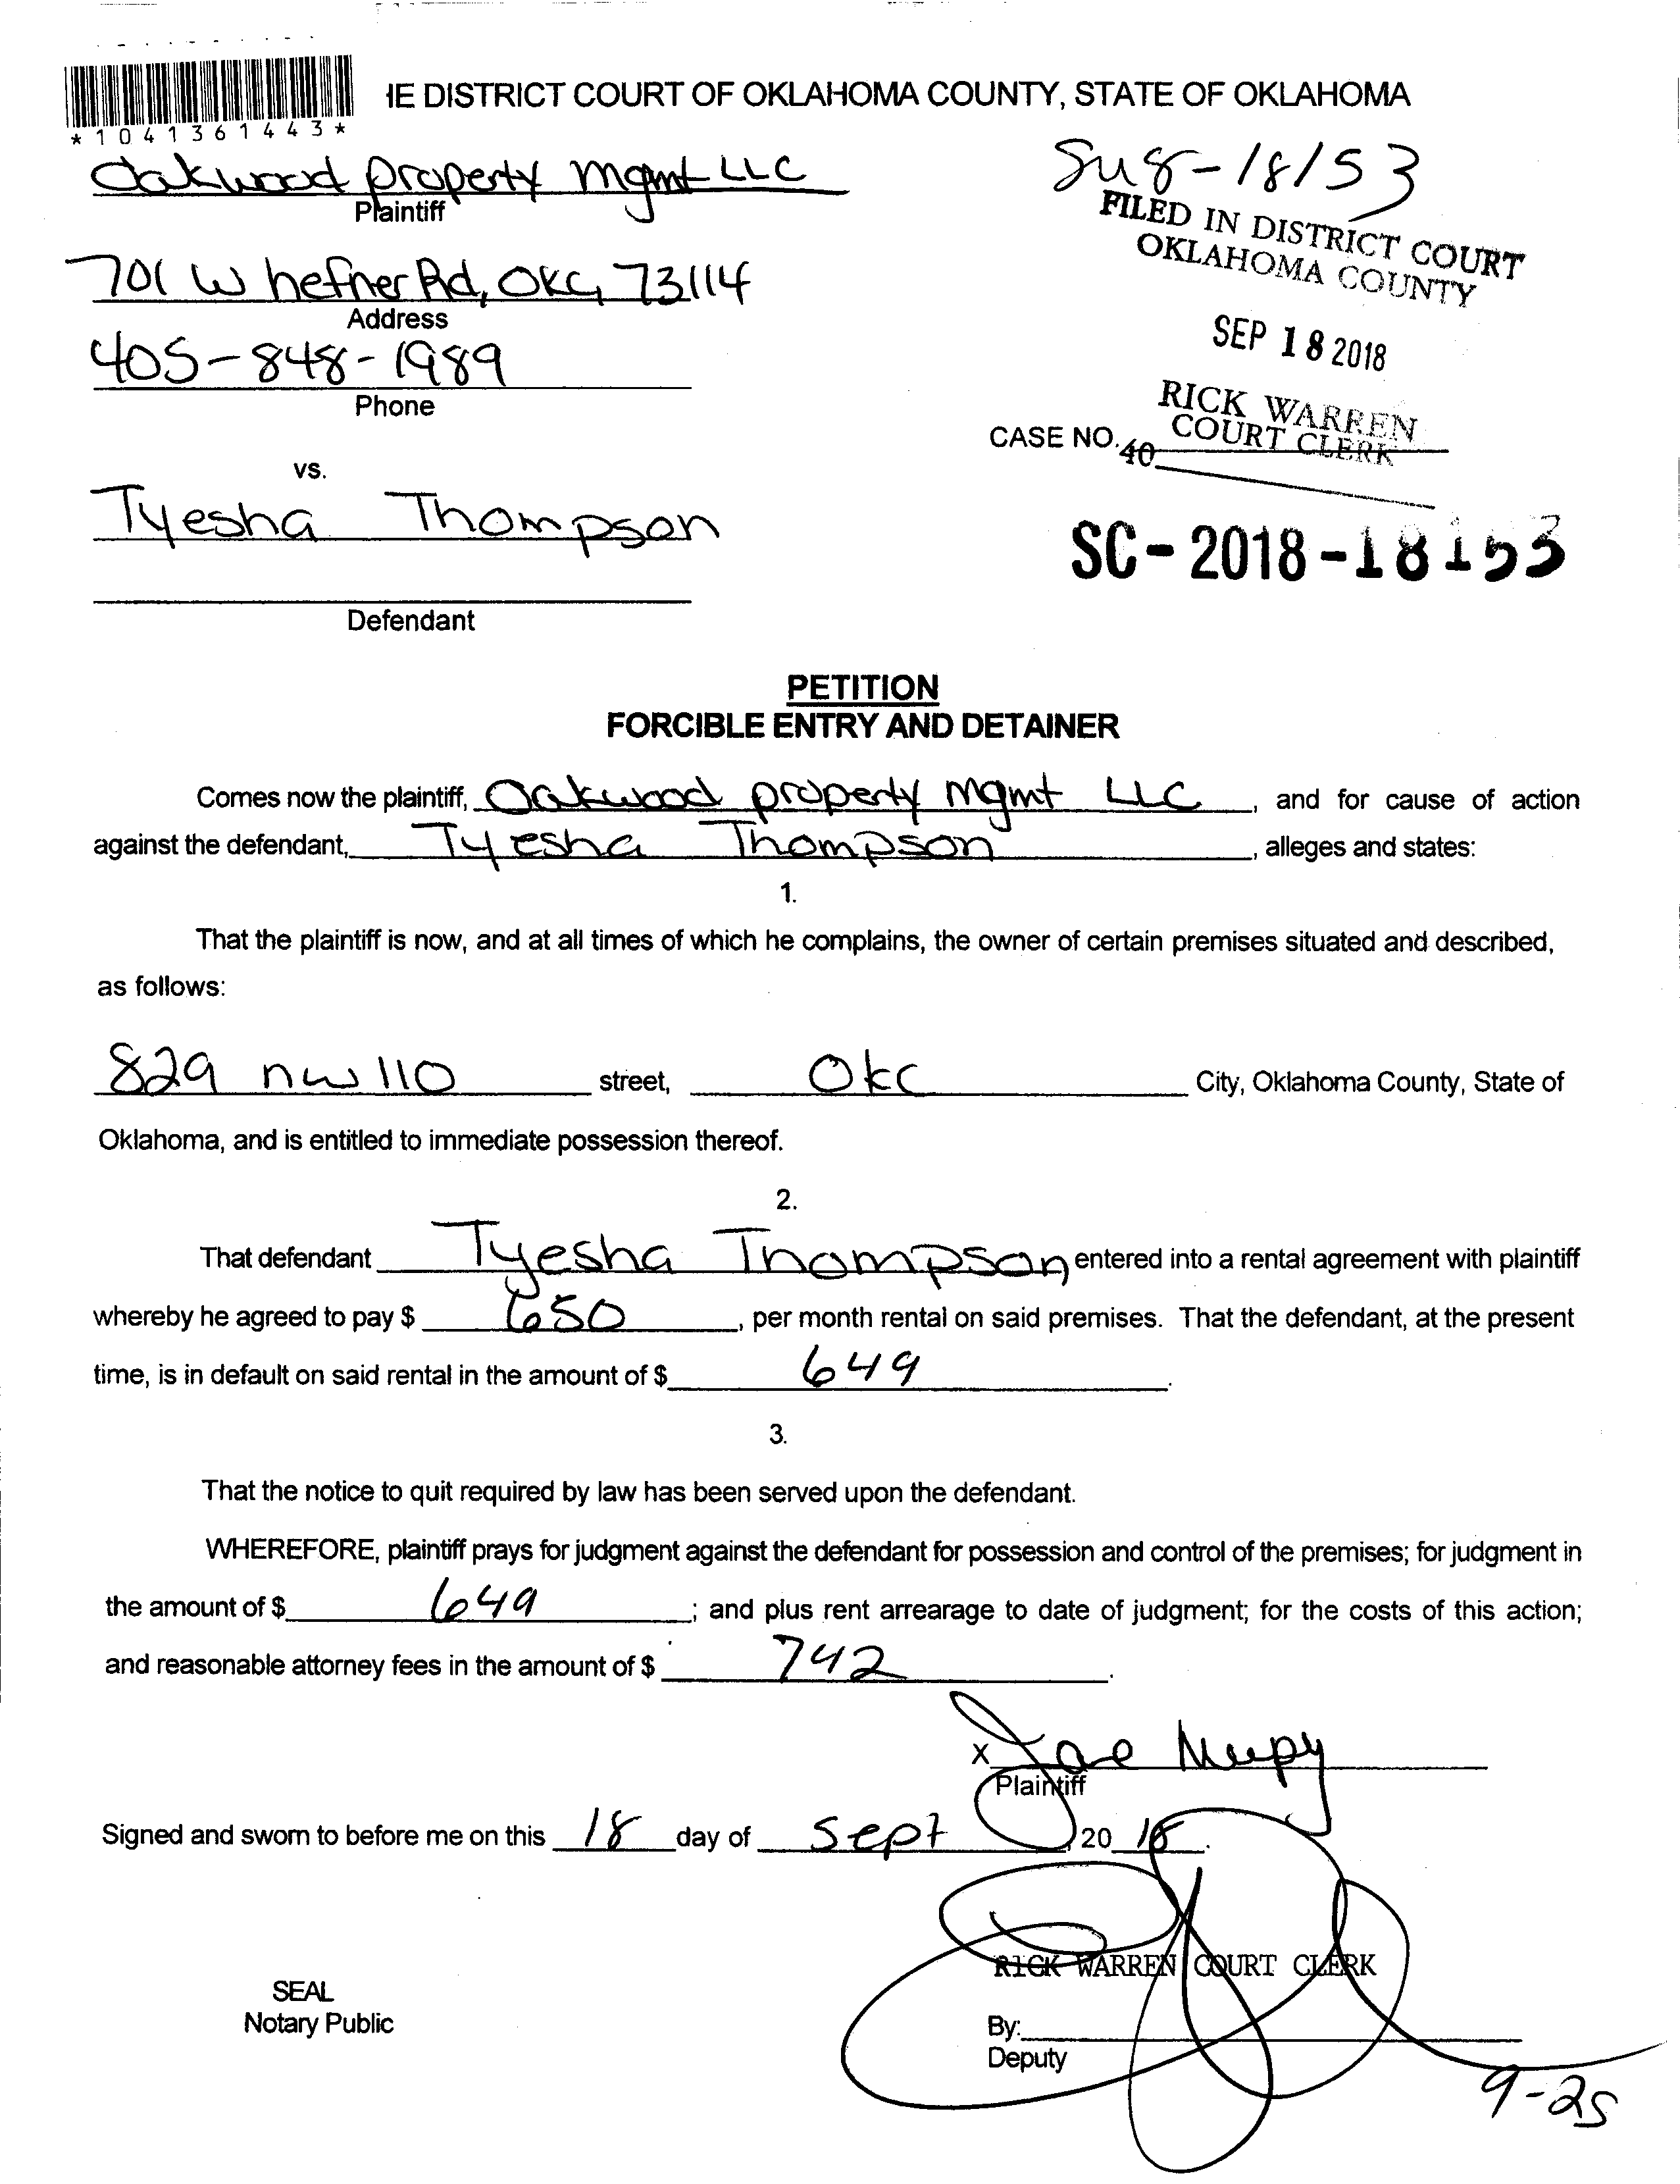 IE DISTRICT COURT OF OKLAHOMA COUNTY, STATE OF OKLAHOMA
*1041361443*
Oakwood property mgmt LLC
Plaintiff
18153
FILED IN DISTRICT COURT
OKLAHOMA COUNTY
701 W hefner Rd, OKC, 73114
Address
SEP 18 2018
405-848-1989
Phone
RICK WARREN
COURT CLERK
CASE NO.
40
vs.
Tyesha Thompson
SC-2018-18153
Defendant
PETITION
FORCIBLE ENTRY AND DETAINER
Comes now the plaintiff, Oakwood property mgmt LLC, and for cause of action
against the defendant, Tyesha Thompson, alleges and states:
1.
That the plaintiff is now, and at all times of which he complains, the owner of certain premises situated and described,
as follows:
829 nw 110 street, Okc City, Oklahoma County, State of
Oklahoma, and is entitled to immediate possession thereof.
2.
That defendant Tyesha Thompson entered into a rental agreement with plaintiff
whereby he agreed to pay $ 650, per month rental on said premises. That the defendant, at the present
time, is in default on said rental in the amount of $ 649.
3.
That the notice to quit required by law has been served upon the defendant.
WHEREFORE, plaintiff prays for judgment against the defendant for possession and control of the premises; for judgment in
the amount of $ 649; and plus rent arrearage to date of judgment; for the costs of this action;
and reasonable attorney fees in the amount of $ 742.
X
Plaintiff
Signed and sworn to before me on this 18 day of Sept, 20 18.
RICK WARREN COURT CLERK
SEAL
Notary Public
By:
Deputy
9-25